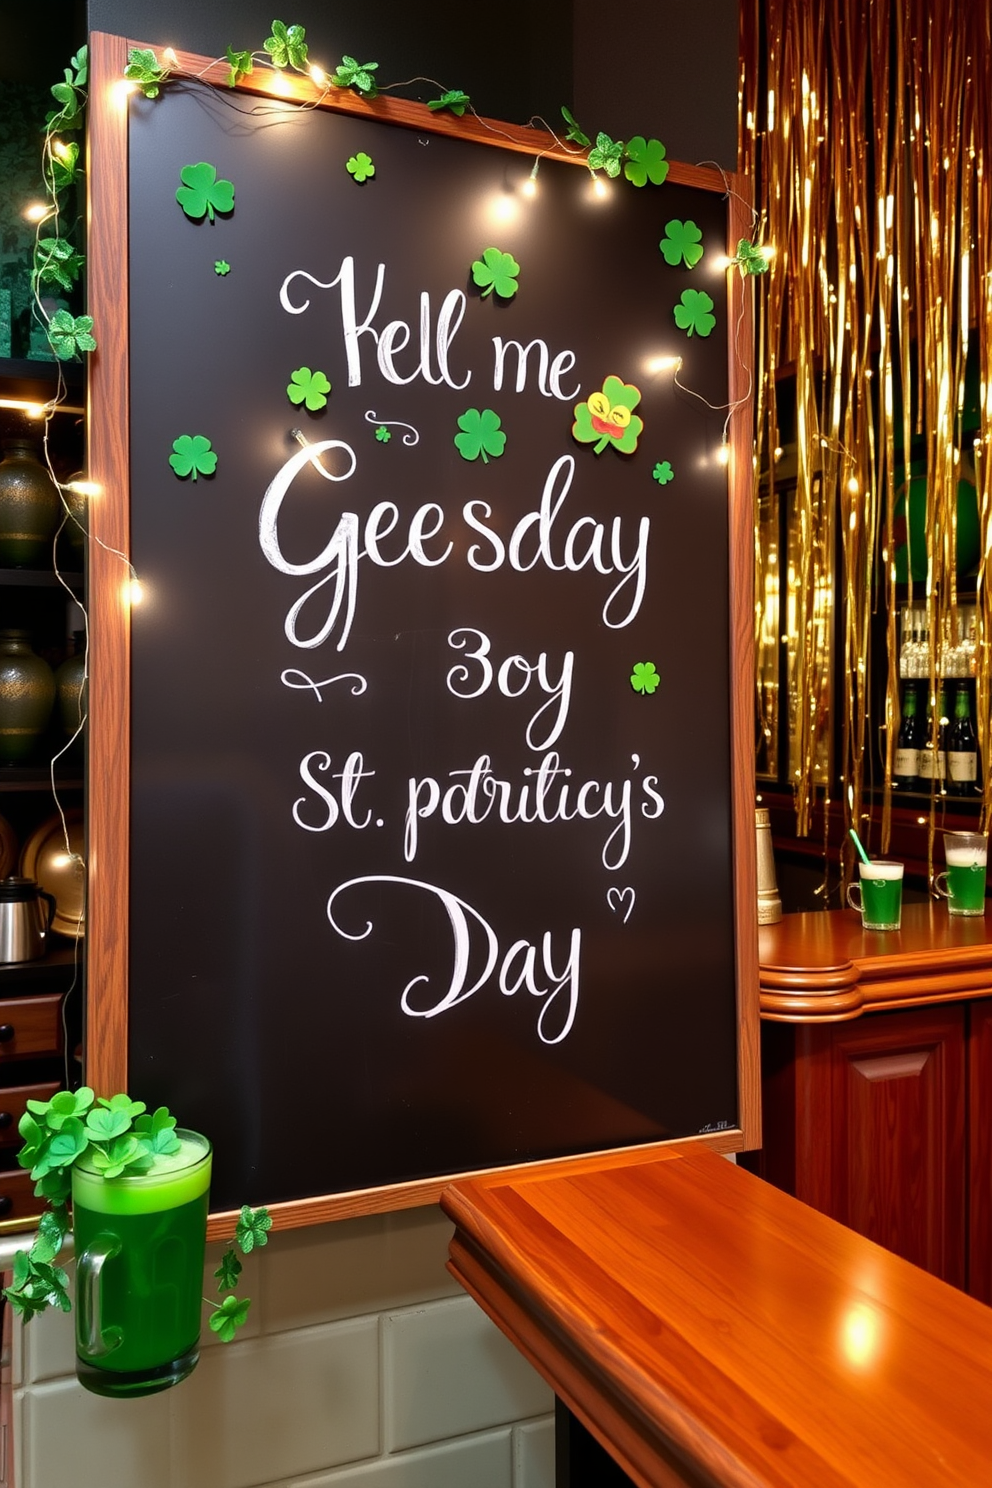 Kell me
Geesday
3oy
St. patriticy's
Day